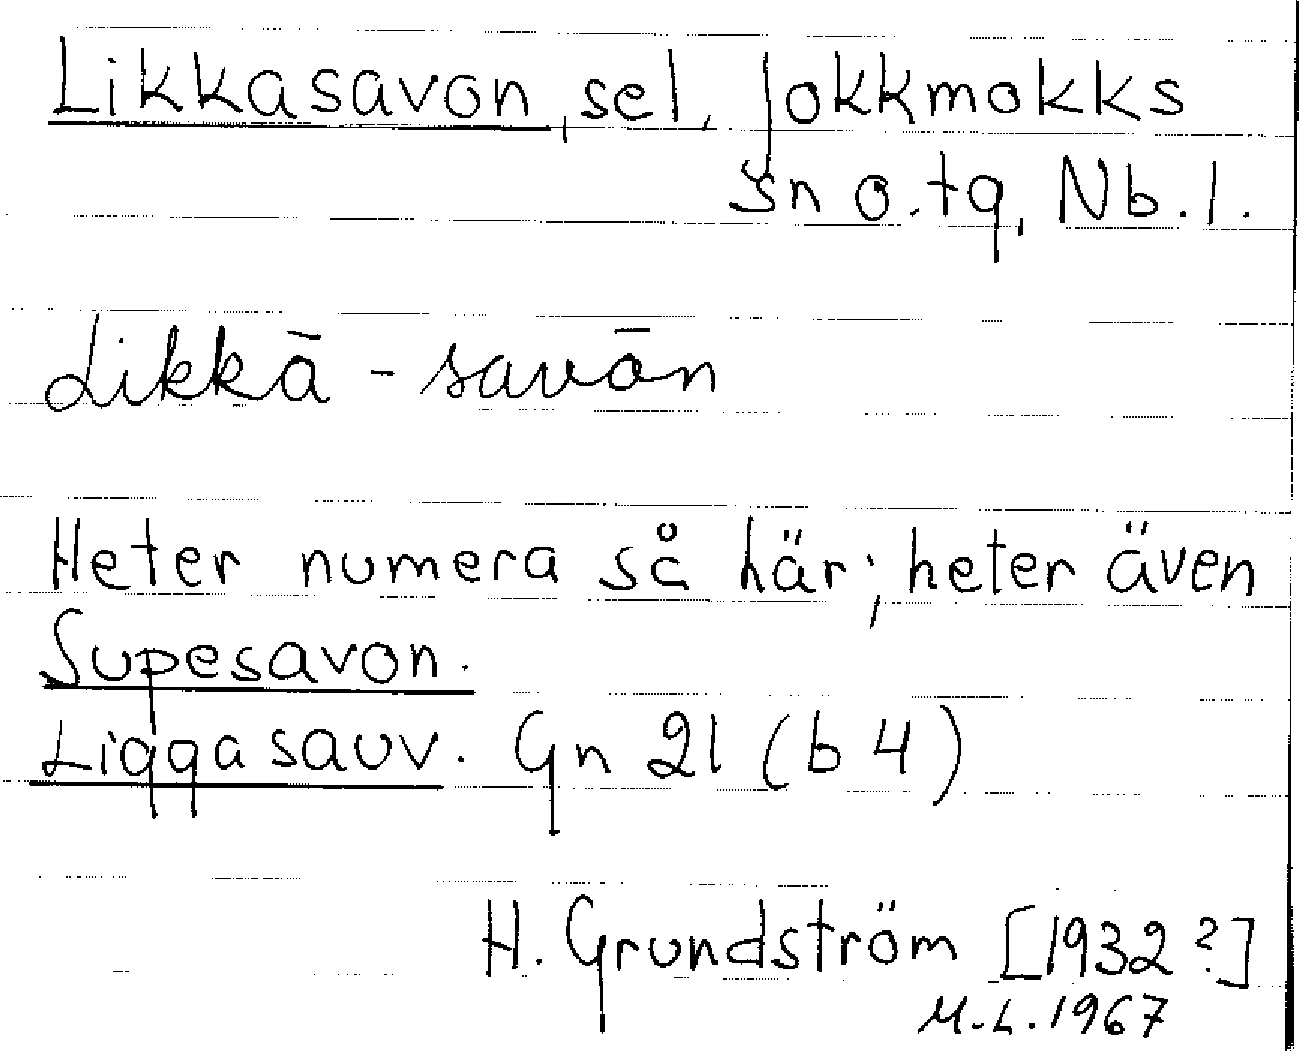 Likkasavon, sel, Jokkmokks
sn o. tg, Nb. l.
Likkā - savōn
Heter numera så här; heter även
Supesavon.
Liggasauv. Gn 21 (b 4)
H. Grundström [1932 ?]
M.L. 1967